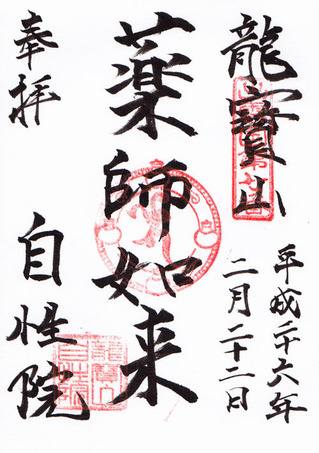 龍寳山
平成二十六年
二月二十二日
薬師如来
奉拝
自性院